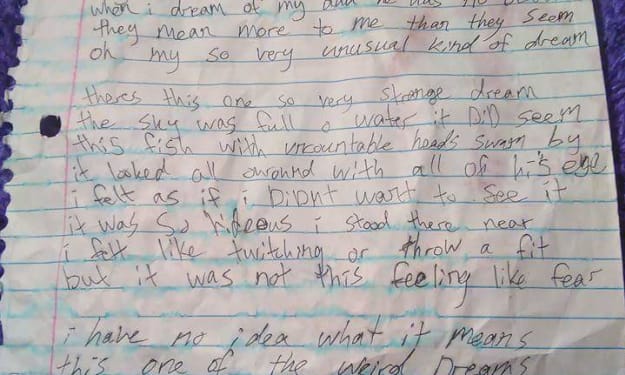 when i dream of my and he has no
they mean more to me than they seem
oh my so very unusual kind of dream
theres this one so very strange dream
the sky was full o water it DiD seem
this fish with uncountable heads swam by
it looked all around with all of his eye
i felt as if i DiDnt want to see it
it was so hideous i stood there near
i felt like twitching or throw a fit
but it was not this feeling like fear
i have no idea what it means
this one of the weird Dreams